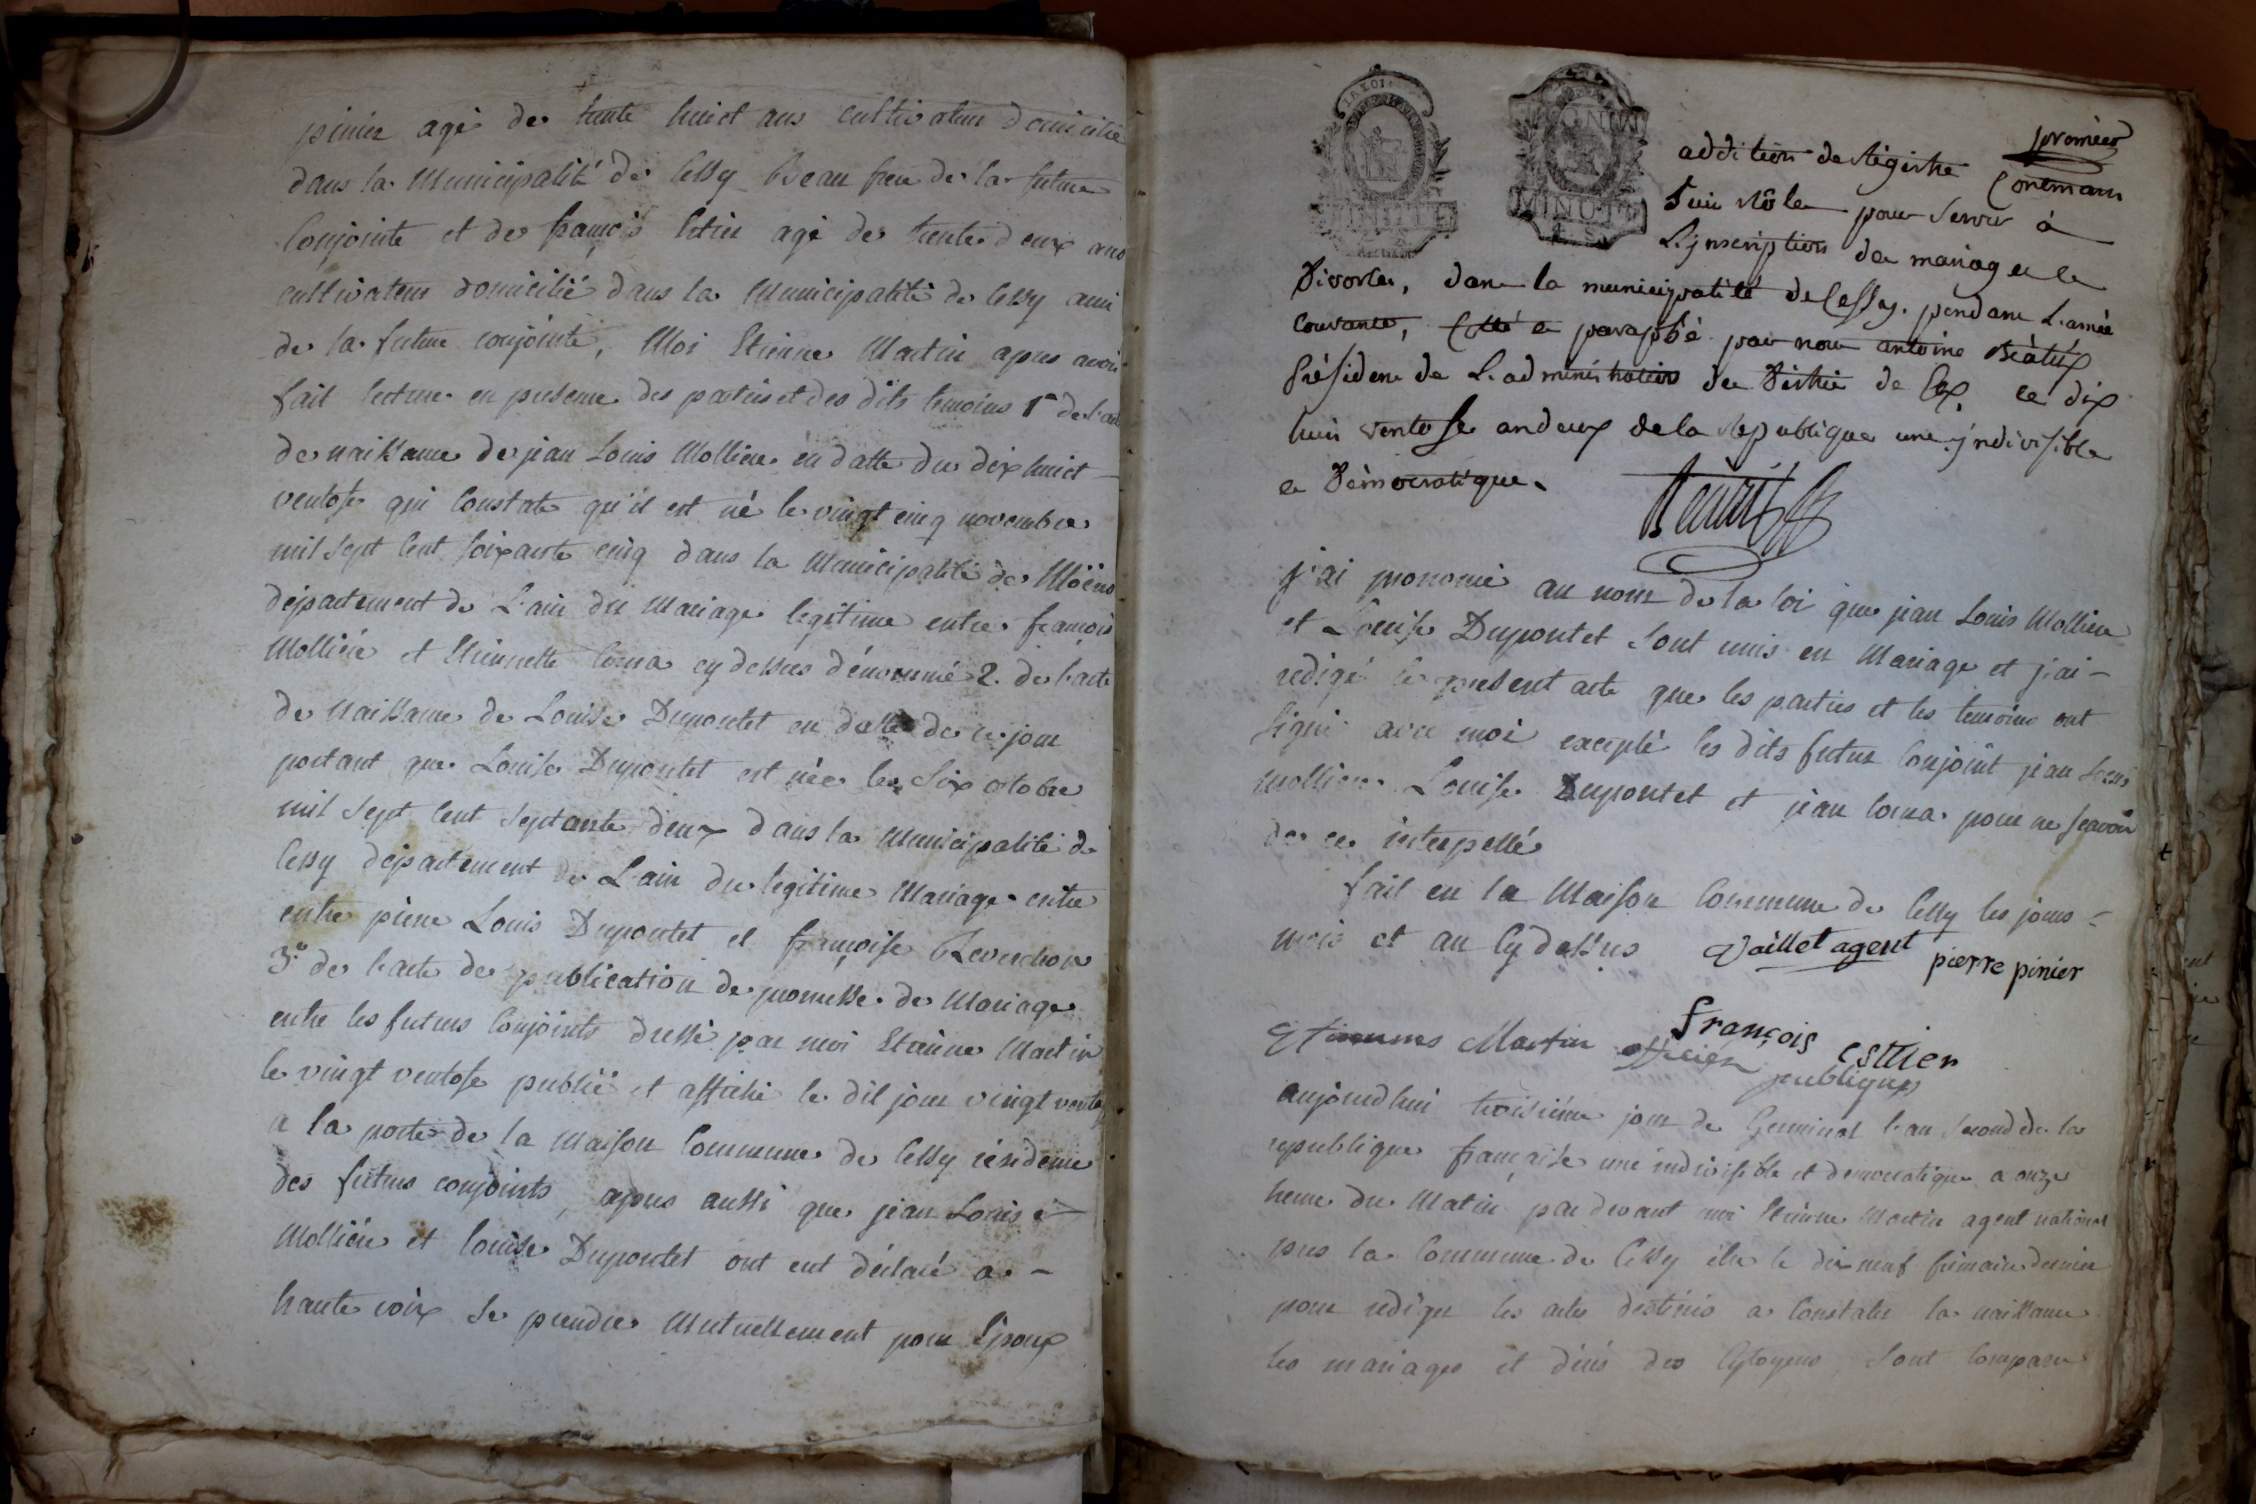 pinier agé de trente huict ans cultivateur domicilié
dans la Municipalité de Cessy Beau frere de la future
Conjointe et de françois Estier agé de trente deux ans
cultivateur domicilié dans la Municipalité de Cessy ami
de la future conjointe, Moi Etienne Martin apres avoir
fait lecture en presence des parties et des dits temoins 1º de l'acte
de naissance de jean Louis Mollien en datte du dix huict
ventose qui Constate qu'il est né le vingt cinq novembre
mil sept cent soixante cinq dans la Municipalité de Moëns
departement de L'ain du Mariage legitime entre françois
Mollién et Etiennette Corna cy dessus dénommé 2. de l'acte
de naissance de Louise Dupontet en datte de ce jour
portant que Louise Dupontet est née le Six octobre
mil sept cent septante deux dans la Municipalité de
Cessy departement de L'ain du legitime Mariage entre
entre pierre Louis Dupontet et françoise Reverchon
3º de l'acte de publication de promesse de Mariage
entre les futurs Conjoints dressé par moi Etienne Martin
le vingt ventose publié et affiché le dit jour vingt ventose
a la porte de la maison Commune de Cessy résidence
des futurs conjoints, apres aussi que jean Louis
Mollién et Louise Dupontet ont eut déclaré a
haute voix se prendre Mutuellement pour Epoux
premier
addition de Régistre Contenans
huit rôle pour Servir à
L'jnscription de mariage et
Divorce, dans la municipalité de Cessy. pendant L'année
Courante, Cotté et paraphé par nous antoine
Présiden de L'administration du District de Gex, ce dix
huit ventose an deux de la République une jndivisible
et Démocratique.
j'ai prononcé au nom de la loi que jean Louis Mollien
et Louise Dupontet sont unis en Mariage et j'ai
redigé le present acte que les parties et les temoins ont
signé avec moi excepté les dits futur Conjoint jean Louis
Mollien Louise Dupontet et jean Corna pour ne scavoir
de ce interpellé
fait en la Maison Commune de Cessy les jours
mois et an Cy dessus Vaillet agent pierre pinier
françois Estier
Etiennes Martin officier publique
aujourdhui troisième jour de Germinal l'an second de la
republique française une indivisible et democratique a onze
heure du Matin par devant moi Etienne Martin agent national
pres la Commune de Cessy élu le dix neuf frimaire dernier
pour rediger les actes destinés a Constater la naissance
les mariages et décés des Cytoyens, sont Comparu
LA LOI
MINUTE